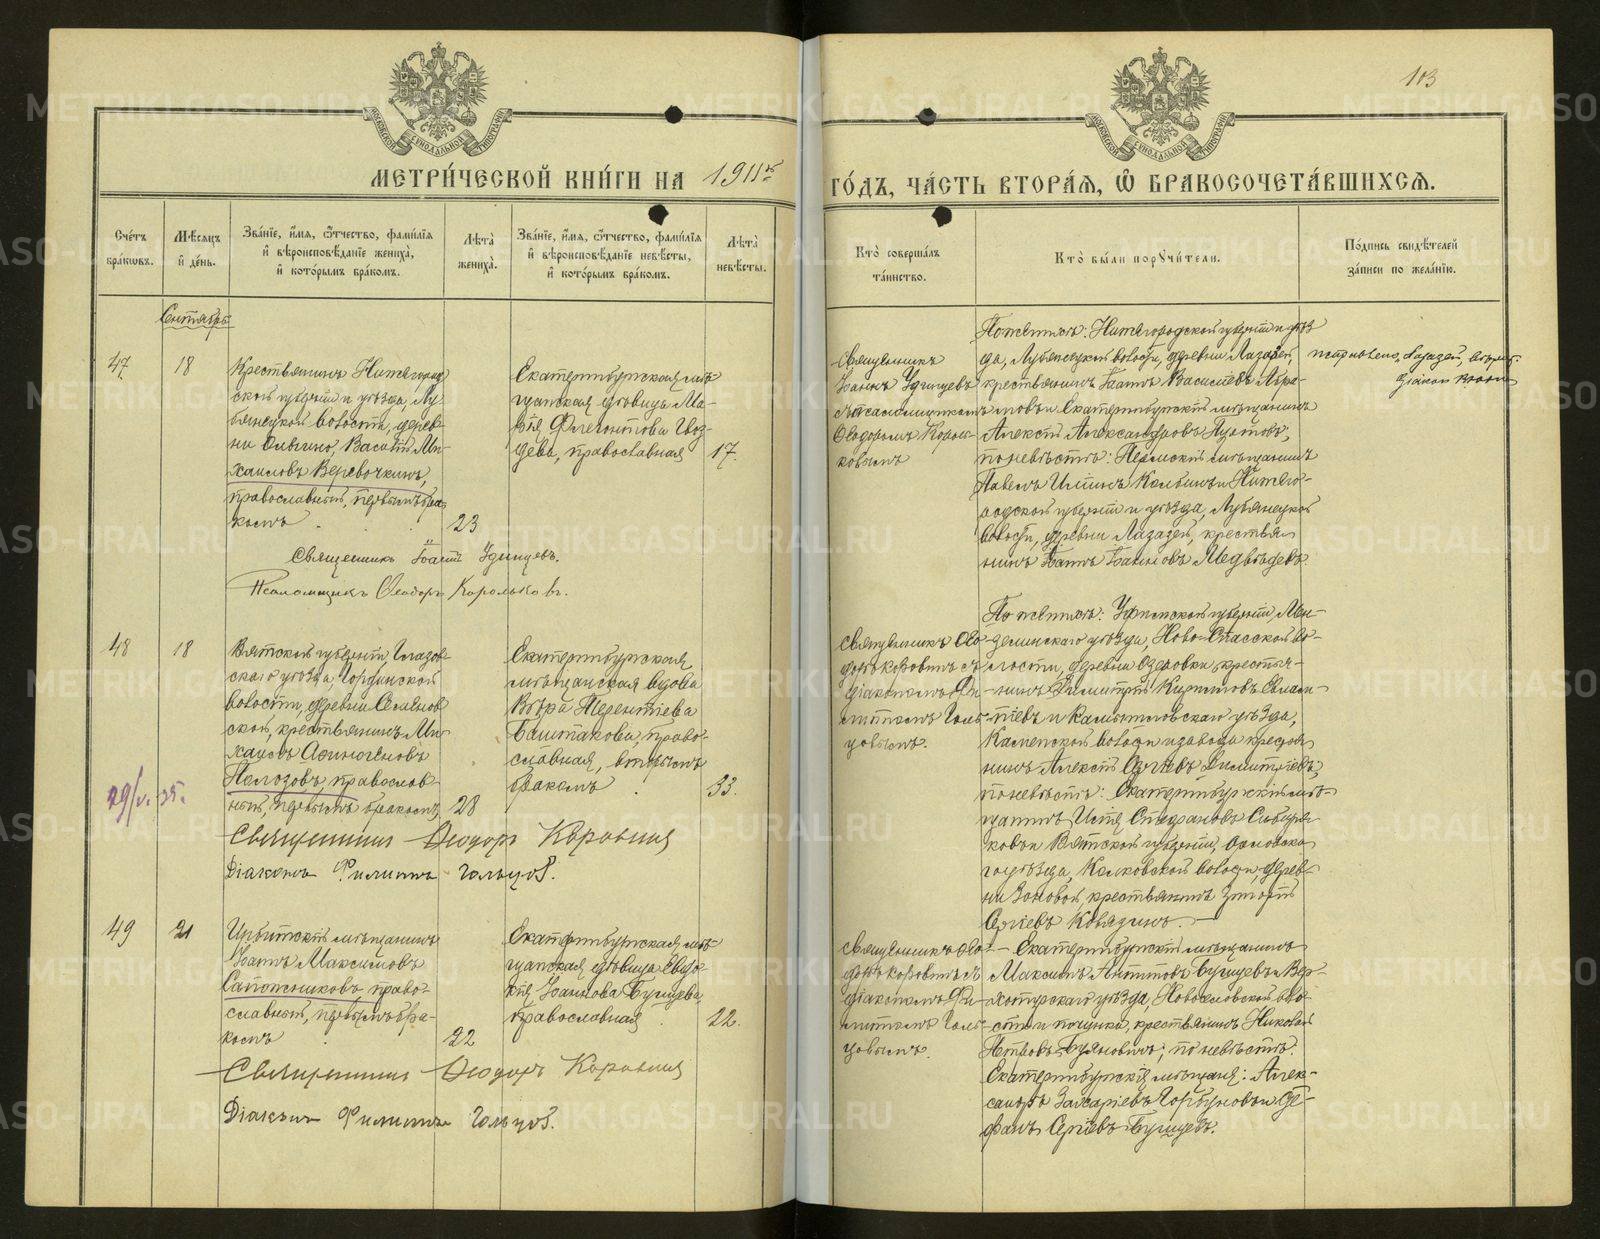 103
МЕТРИ́ЧЕСКОЙ КНИ́ГИ НА 1911й ГО́ДЪ, ЧА́СТЬ ВТОРА́Я, Ѽ БРАКОСОЧЕТА́ВШИХСЯ.
Сче́тъ бра́ковъ.
Мѣ́сяцъ и҆ де́нь.
Зва́нїе, и҆́мя, ѻ҆́тчество, фами́лїя и҆ вѣроисповѣ́данїе жениха̀, и҆ кото́рымъ бра́комъ.
Лѣ́та жениха̀.
Зва́нїе, и҆́мя, ѻ҆́тчество, фами́лїя и҆ вѣроисповѣ́данїе невѣ́сты, и҆ кото́рымъ бра́комъ.
Лѣ́та невѣ́сты.
Кто̀ соверша́лъ та́инство.
Кто̀ бы́ли порꙋчи́тели.
По́дпись свидѣ́телей за́писи по жела́нїю.
Сентябрь
47
18
Крестьянинъ Нижегород-
ской губерніи и уѣзда, Лу-
бянецкой волости, дерев-
ни
Василій Ми-
хаиловъ Веревочкинъ,
православный, первымъ бра-
комъ
23
Екатеринбургская мѣ-
щанская дѣвица Ма-
рія Флегонтова Гвоз-
дева, православная
17.
Священникъ
Іоаннъ Удинцевъ
съ псаломщикомъ
Ѳеодоромъ Король-
ковымъ
По женихѣ: Нижегородской губерніи и уѣз-
да, Лубянецкой волости, деревни Лазазей,
крестьянинъ Іоаннъ Василіевъ Абра-
мовъ и Екатеринбургскій мѣщанинъ
Алексѣй Александровъ
по невѣстѣ: Пермскій мѣщанинъ
Павелъ Ильинъ и Нижего-
родской губерніи и уѣзда, Лубянецкой
волости, деревни Лазазей, крестья-
нинъ Іоаннъ Іоанновъ Медвѣдевъ.
Священникъ Іоаннъ Удинцевъ.
Псаломщикъ Ѳеодоръ Корольковъ.
48
18
29/V. 35.
Вятской губерніи, Глазов-
скаго уѣзда, Гординской
волости, деревни Семенов-
ской, крестьянинъ Ми-
хаилъ Аѳиногеновъ
Полозовъ, православ-
ный, первымъ бракомъ,
28
Екатеринбургская
мѣщанская вдова
Вѣра Терентіева
Башмакова, право-
славная, вторымъ
бракомъ
33.
Священникъ Ѳео-
доръ Коровинъ съ
діакономъ Фи-
липпомъ Голь-
цовымъ.
По женихѣ: Уфимской губерніи, Мен-
зелинскаго уѣзда, Ново-Спасской во-
лости, деревни Озеровки, крестья-
нинъ Димитрій Кирилловъ
и Камышловскаго уѣзда,
Каменской волости и завода крестья-
нинъ Алексѣй Сергіевъ Димитріевъ;
по невѣстѣ: Екатеринбургскій мѣ-
щанинъ Илія Стефановъ Сибиря-
ковъ и Вятской губерніи, Орловска-
го уѣзда, волости, дерев-
ни Зоновой, крестьянинъ Григорій
Сергіевъ Ковязинъ.
Священникъ Ѳеодоръ Коровинъ
Діаконъ Филиппъ Гольцовъ.
49
21
Ирбитскій мѣщанинъ
Іоаннъ Максимовъ
Сапожниковъ, право-
славный, первымъ бра-
комъ
22
Екатеринбургская мѣ-
щанская дѣвица Евдо-
кія Іоаннова Бушуева,
православная
22.
Священникъ Ѳео-
доръ Коровинъ съ
діакономъ Фи-
липпомъ Голь-
цовымъ.
Екатеринбургскій мѣщанинъ
Максимъ Антиповъ Бушуевъ и Вер-
хотурскаго уѣзда,
крестьянинъ Николай
Петровъ по невѣстѣ:
Екатеринбургскіе мѣщане: Алек-
сандръ Захаріевъ Горбуновъ и Сте-
фанъ Сергіевъ Бушуевъ.
Священникъ Ѳеодоръ Коровинъ
Діаконъ Филиппъ Гольцовъ.
METRIKI.GASO-URAL.RU